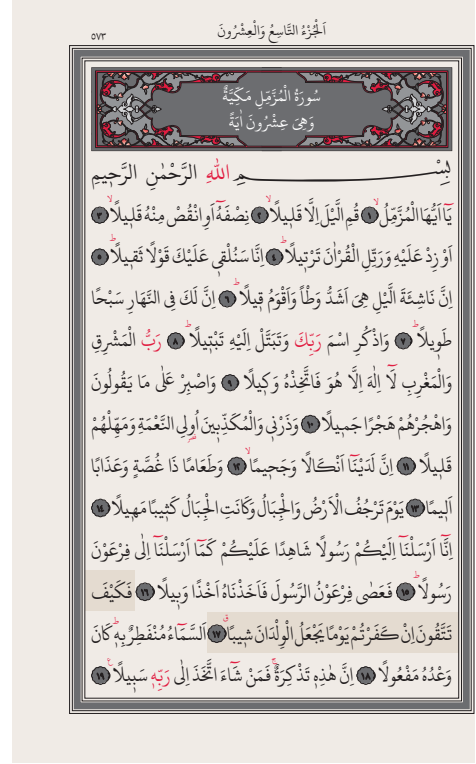 اَلْجُزْءُ التَّاسِعُ وَالْعِشْرُونَ
٥٧٣
سُورَةُ الْمُزَّمِّلِ مَكِّيَّةٌ
وَهِيَ عِشْرُونَ اٰيَةً
بِسْمِ اللهِ الرَّحْمٰنِ الرَّحِيمِ
يَٓا اَيُّهَا الْمُزَّمِّلُۙ ﴿١﴾ قُمِ الَّيْلَ اِلَّا قَلِيلًاۙ ﴿٢﴾ نِصْفَهُٓ اَوِ انْقُصْ مِنْهُ قَلِيلًاۙ ﴿٣﴾
اَوْ زِدْ عَلَيْهِ وَرَتِّلِ الْقُرْاٰنَ تَرْتِيلًاۜ ﴿٤﴾ اِنَّا سَنُلْقِي عَلَيْكَ قَوْلًا ثَقِيلًاۜ ﴿٥﴾
اِنَّ نَاشِئَةَ الَّيْلِ هِيَ اَشَدُّ وَطْـًٔا وَاَقْوَمُ قِيلًاۜ ﴿٦﴾ اِنَّ لَكَ فِي النَّهَارِ سَبْحًا
طَوِيلًاۜ ﴿٧﴾ وَاذْكُرِ اسْمَ رَبِّكَ وَتَبَتَّلْ اِلَيْهِ تَبْتِيلًاۜ ﴿٨﴾ رَبُّ الْمَشْرِقِ
وَالْمَغْرِبِ لَٓا اِلٰهَ اِلَّا هُوَ فَاتَّخِذْهُ وَكِيلًا ﴿٩﴾ وَاصْبِرْ عَلٰى مَا يَقُولُونَ
وَاهْجُرْهُمْ هَجْرًا جَمِيلًا ﴿١٠﴾ وَذَرْنِي وَالْمُكَذِّبِينَ اُولِي النَّعْمَةِ وَمَهِّلْهُمْ
قَلِيلًا ﴿١١﴾ اِنَّ لَدَيْنَٓا اَنْكَالًا وَجَحِيمًاۙ ﴿١٢﴾ وَطَعَامًا ذَا غُصَّةٍ وَعَذَابًا
اَلِيمًا ﴿١٣﴾ يَوْمَ تَرْجُفُ الْاَرْضُ وَالْجِبَالُ وَكَانَتِ الْجِبَالُ كَثِيبًا مَهِيلًا ﴿١٤﴾
اِنَّٓا اَرْسَلْنَٓا اِلَيْكُمْ رَسُولًا شَاهِدًا عَلَيْكُمْ كَمَٓا اَرْسَلْنَٓا اِلٰى فِرْعَوْنَ
رَسُولًاۜ ﴿١٥﴾ فَعَصٰى فِرْعَوْنُ الرَّسُولَ فَاَخَذْنَاهُ اَخْذًا وَبِيلًا ﴿١٦﴾ فَكَيْفَ
تَتَّقُونَ اِنْ كَفَرْتُمْ يَوْمًا يَجْعَلُ الْوِلْدَانَ شِيبًاۗ ﴿١٧﴾ اَلسَّمَٓاءُ مُنْفَطِرٌ بِهِۜ كَانَ
وَعْدُهُ مَفْعُولًا ﴿١٨﴾ اِنَّ هٰذِهِ تَذْكِرَةٌۚ فَمَنْ شَٓاءَ اتَّخَذَ اِلٰى رَبِّهِ سَبِيلًا ﴿١٩﴾